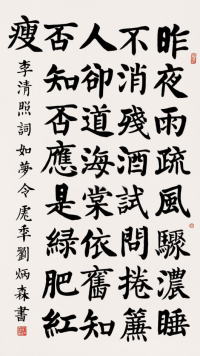 昨夜雨疏風驟濃睡
不消殘酒試問捲簾
人卻道海棠依舊知
否知否應是綠肥紅
瘦
李清照詞如夢令虎秊劉炳森書